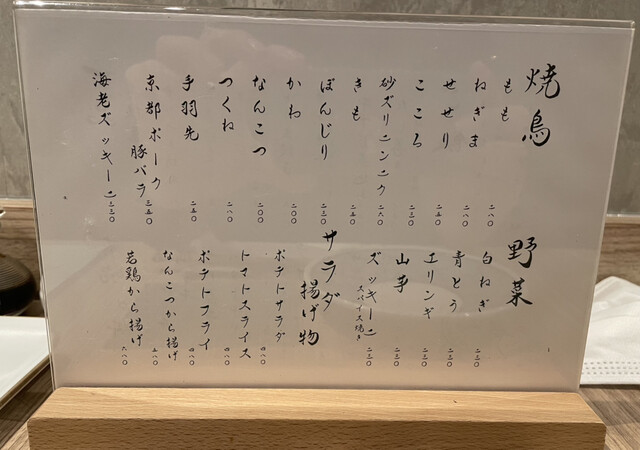 焼鳥
もも 二八〇
ねぎま 二八〇
せせり 二五〇
こころ 二五〇
砂ズリニンニク 二六〇
きも 二五〇
ぼんじり 二三〇
かわ 二〇〇
なんこつ 二〇〇
つくね 二八〇
手羽先 二五〇
京都ポーク
豚バラ 三五〇
海老ズッキーニ 三三〇
野菜
白ねぎ 二三〇
青とう 二三〇
エリンギ 二三〇
山芋 二三〇
ズッキーニ
スパイス焼き 二三〇
サラダ
揚げ物
ポテトサラダ 四八〇
トマトスライス 四八〇
ポテトフライ 四八〇
なんこつから揚げ
若鶏から揚げ 六八〇